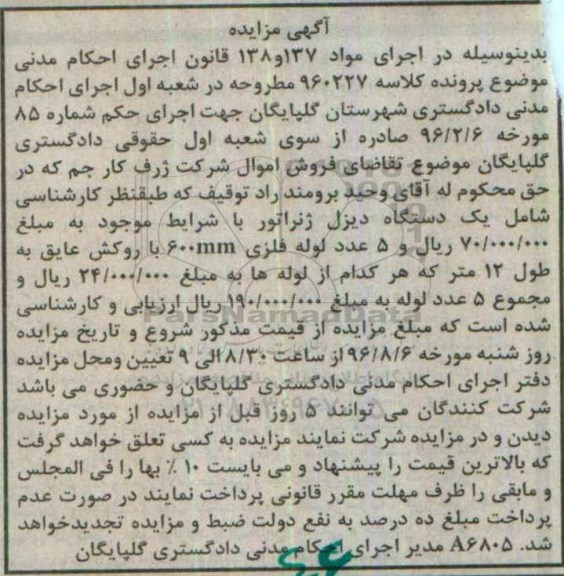 آگهی مزایده
بدینوسیله در اجرای مواد ۱۳۷و۱۳۸ قانون اجرای احکام مدنی
موضوع پرونده کلاسه ۹۶۰۲۲۷ مطروحه در شعبه اول اجرای احکام
مدنی دادگستری شهرستان گلپایگان جهت اجرای حکم شماره ۸۵
مورخه ۹۶/۲/۶ صادره از سوی شعبه اول حقوقی دادگستری
گلپایگان موضوع تقاضای فروش اموال شرکت ژرف کار جم که در
حق محکوم له آقای وحید برومند راد توقیف که طبقنظر کارشناسی
شامل یک دستگاه دیزل ژنراتور با شرایط موجود به مبلغ
۷۰/۰۰۰/۰۰۰ ریال و ۵ عدد لوله فلزی ۶۰۰mm با روکش عایق به
طول ۱۲ متر که هر کدام از لوله ها به مبلغ ۲۴/۰۰۰/۰۰۰ ریال و
مجموع ۵ عدد لوله به مبلغ ۱۹۰/۰۰۰/۰۰۰ ریال ارزیابی و کارشناسی
شده است که مبلغ مزایده از قیمت مذکور شروع و تاریخ مزایده
روز شنبه مورخه ۹۶/۸/۶ از ساعت ۸/۳۰ الی ۹ تعیین ومحل مزایده
دفتر اجرای احکام مدنی دادگستری گلپایگان و حضوری می باشد
شرکت کنندگان می توانند ۵ روز قبل از مزایده از مورد مزایده
دیدن و در مزایده شرکت نمایند مزایده به کسی تعلق خواهد گرفت
که بالاترین قیمت را پیشنهاد و می بایست ۱۰ ٪ بها را فی المجلس
و مابقی را ظرف مهلت مقرر قانونی پرداخت نمایند در صورت عدم
پرداخت مبلغ ده درصد به نفع دولت ضبط و مزایده تجدیدخواهد
شد. A۶۸۰۵ مدیر اجرای احکام مدنی دادگستری گلپایگان
ParsNamadData